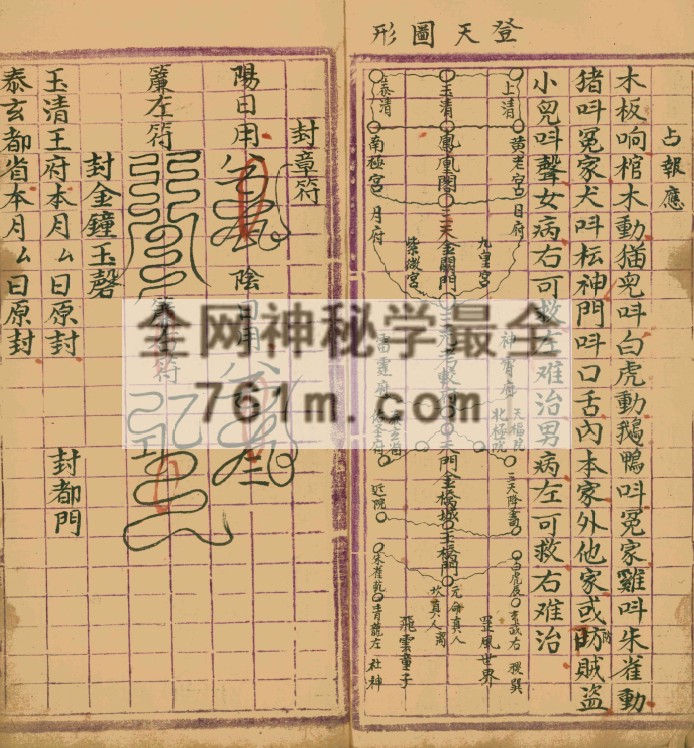 占報應
木板响棺木動猫兒呌白虎動鵝鴨呌冤家雞呌朱雀動
猪呌冤家犬呌枟神門呌口舌內本家外他家或防賊盜
小兒呌聲女病右可救左难治男病左可救右难治
登天圖形
上清
黄老宮
日府
九皇宮
神霄府
天樞院
北極院
玉清
鳳凰閣
三天金闕門
泰清
南極宮
月府
紫微宮
雷霆府
泰玄省
近院
元命真人
罡風世界
飛雲童子
社神
青龍左
封章符
陽日用
陰日用
簾左符
簾右符
封金鐘玉磬
玉清王府本月厶日原封
封都門
泰玄都省本月厶日原封
全网神秘学最全
761m.com